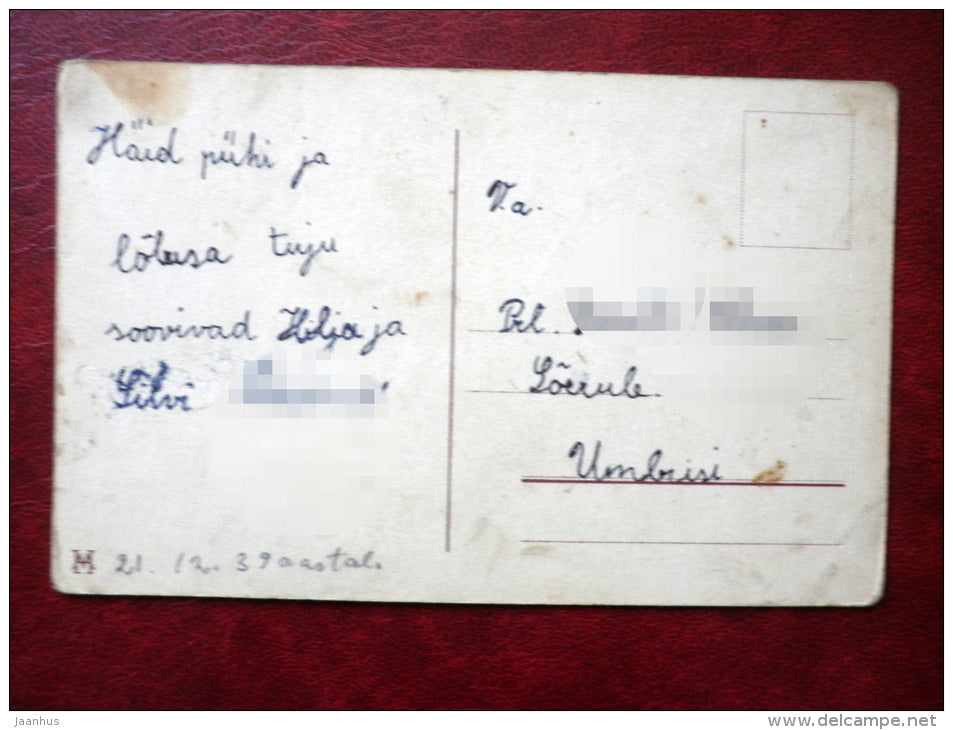 Häid pühi ja
lõbusa tuju
soovivad Hilja ja
Silvi
21. 12. 39 aastal.
V.a.
Prl.
Umbusi
Jaanhus
www.delcampe.net